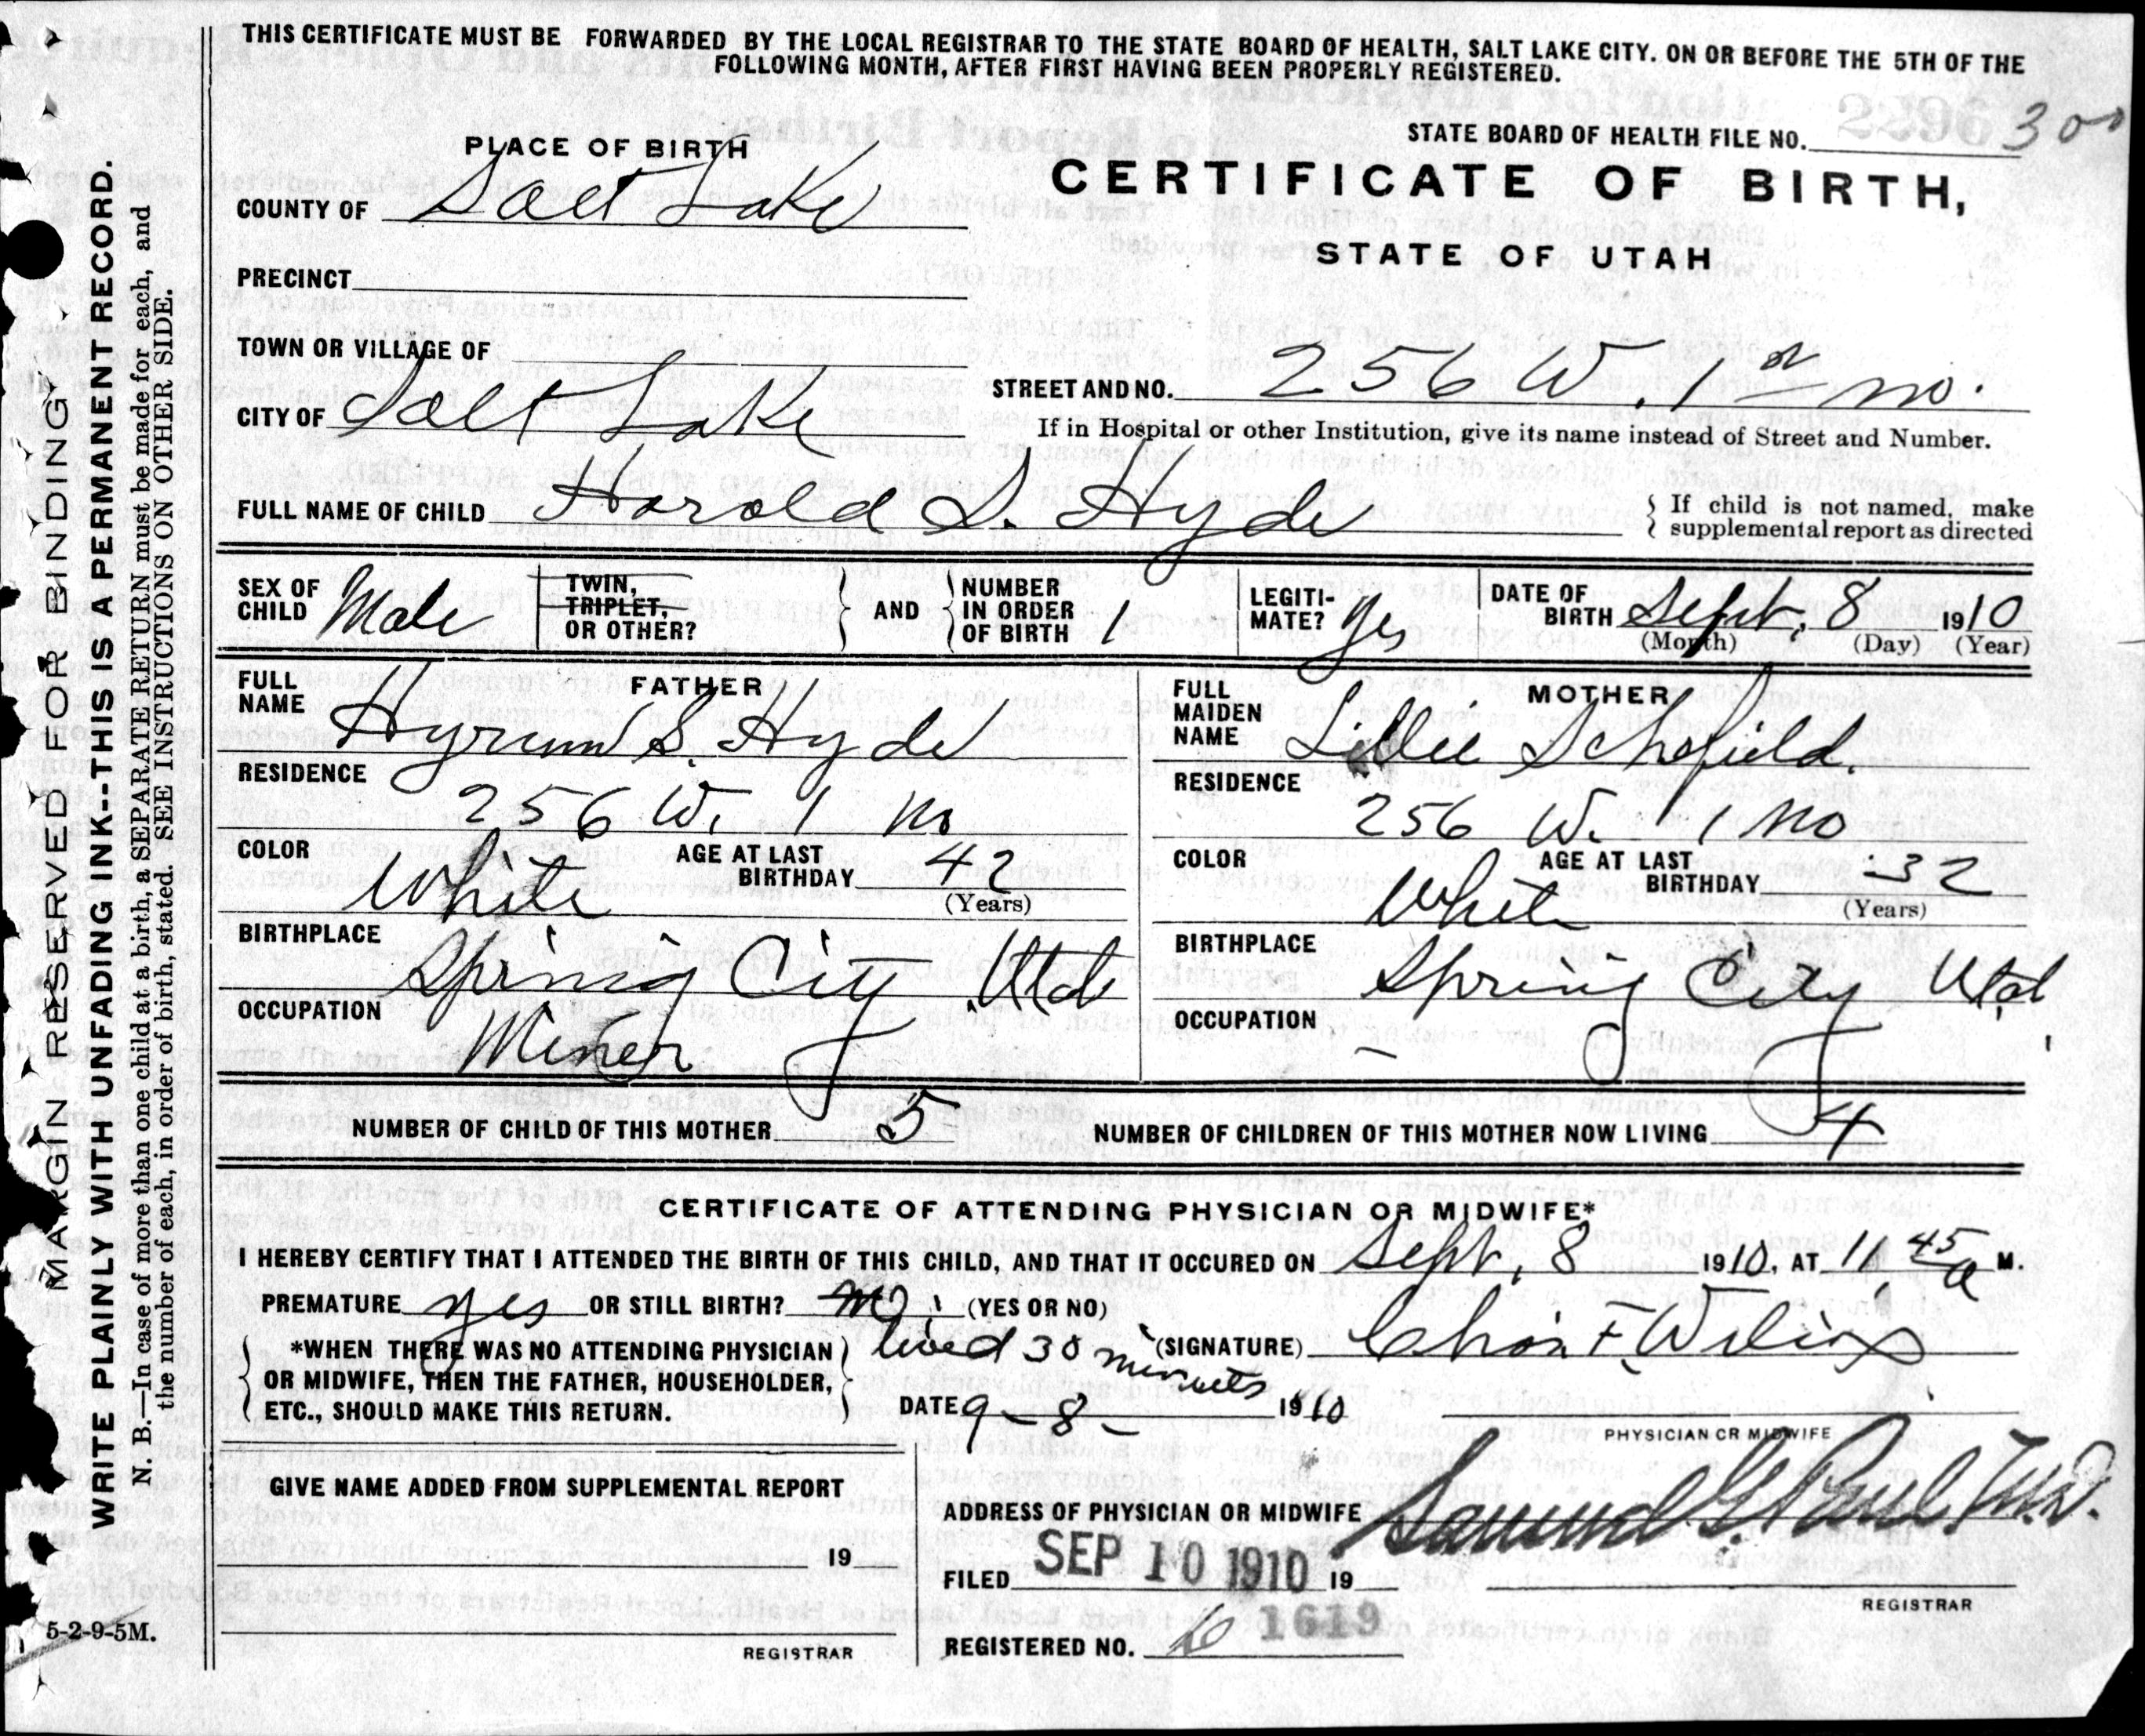 THIS CERTIFICATE MUST BE FORWARDED BY THE LOCAL REGISTRAR TO THE STATE BOARD OF HEALTH, SALT LAKE CITY. ON OR BEFORE THE 5TH OF THE
FOLLOWING MONTH, AFTER FIRST HAVING BEEN PROPERLY REGISTERED.
STATE BOARD OF HEALTH FILE NO. 300
CERTIFICATE OF BIRTH,
STATE OF UTAH
PLACE OF BIRTH
COUNTY OF Salt Lake
PRECINCT
TOWN OR VILLAGE OF
CITY OF Salt Lake
STREET AND NO. 256 W. 1st no.
If in Hospital or other Institution, give its name instead of Street and Number.
FULL NAME OF CHILD Harold S. Hyde
If child is not named, make
supplemental report as directed
SEX OF CHILD Male
TWIN, TRIPLET, OR OTHER?
AND
NUMBER IN ORDER OF BIRTH 1
LEGITI-MATE? Yes
DATE OF BIRTH Sept. 8 1910
(Month) (Day) (Year)
FATHER
FULL NAME Hyrum S. Hyde
RESIDENCE 256 W. 1 No
COLOR White
AGE AT LAST BIRTHDAY 42
(Years)
BIRTHPLACE Spring City Utah
OCCUPATION Miner
MOTHER
FULL MAIDEN NAME Lillie Schofield.
RESIDENCE 256 W. 1 No
COLOR White
AGE AT LAST BIRTHDAY 32
(Years)
BIRTHPLACE Spring City Utah
OCCUPATION –
NUMBER OF CHILD OF THIS MOTHER 5
NUMBER OF CHILDREN OF THIS MOTHER NOW LIVING 4
CERTIFICATE OF ATTENDING PHYSICIAN OR MIDWIFE*
I HEREBY CERTIFY THAT I ATTENDED THE BIRTH OF THIS CHILD, AND THAT IT OCCURED ON Sept. 8 1910, AT 11 45 a M.
PREMATURE yes OR STILL BIRTH? no (YES OR NO)
lived 30 minutes
*WHEN THERE WAS NO ATTENDING PHYSICIAN
OR MIDWIFE, THEN THE FATHER, HOUSEHOLDER,
ETC., SHOULD MAKE THIS RETURN.
(SIGNATURE) Chas F. Wilcox
DATE 9-8- 1910
PHYSICIAN OR MIDWIFE
GIVE NAME ADDED FROM SUPPLEMENTAL REPORT
19
REGISTRAR
ADDRESS OF PHYSICIAN OR MIDWIFE
Samuel G. Paul, M.D.
FILED SEP 10 1910 19
REGISTRAR
REGISTERED NO. 1619
MARGIN RESERVED FOR BINDING
WRITE PLAINLY WITH UNFADING INK--THIS IS A PERMANENT RECORD.
N. B.—In case of more than one child at a birth, a SEPARATE RETURN must be made for each, and
the number of each, in order of birth, stated. SEE INSTRUCTIONS ON OTHER SIDE.
5-2-9-5M.